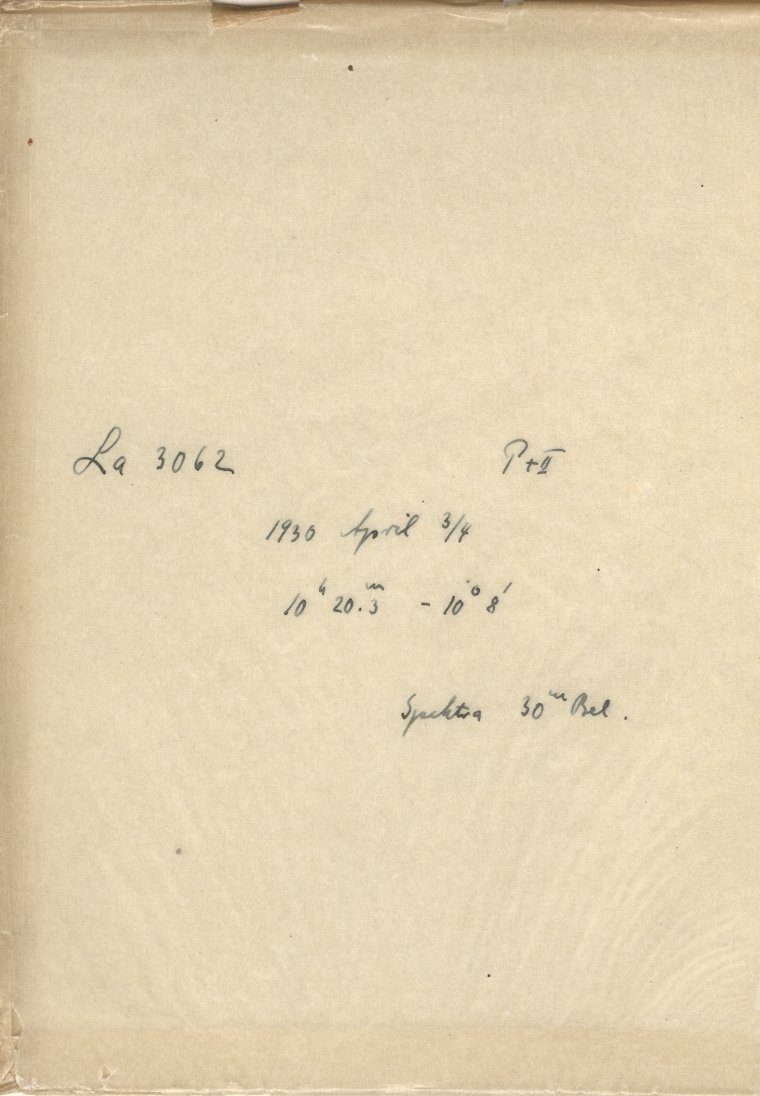 La 3062 P+II
1930 April 3/4
10ʰ 20.3ᵐ - 10° 8'
Spektra 30ᵐ Bel.